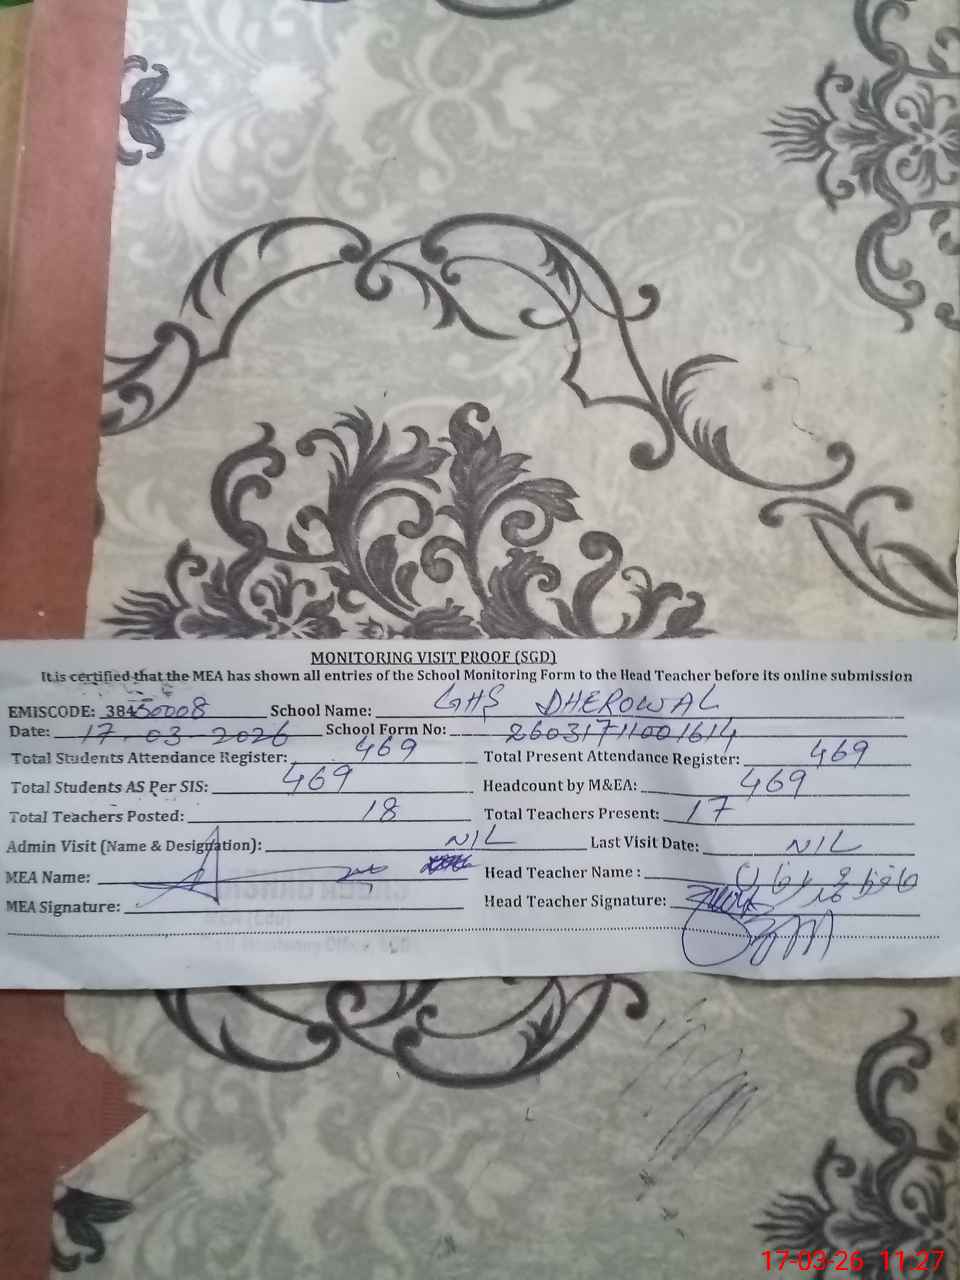 MONITORING VISIT PROOF (SGD)
It is certified that the MEA has shown all entries of the School Monitoring Form to the Head Teacher before its online submission
EMISCODE: 38450008 School Name: GHS DHEROWAL
Date: 17-03-2026 School Form No: 2603171001614
Total Students Attendance Register: 469 Total Present Attendance Register: 469
Total Students AS Per SIS: 469 Headcount by M&EA: 469
Total Teachers Posted: 18 Total Teachers Present: 17
Admin Visit (Name & Designation): NIL Last Visit Date: NIL
MEA Name: Head Teacher Name :
MEA Signature: Head Teacher Signature:
17-03-26 11:27